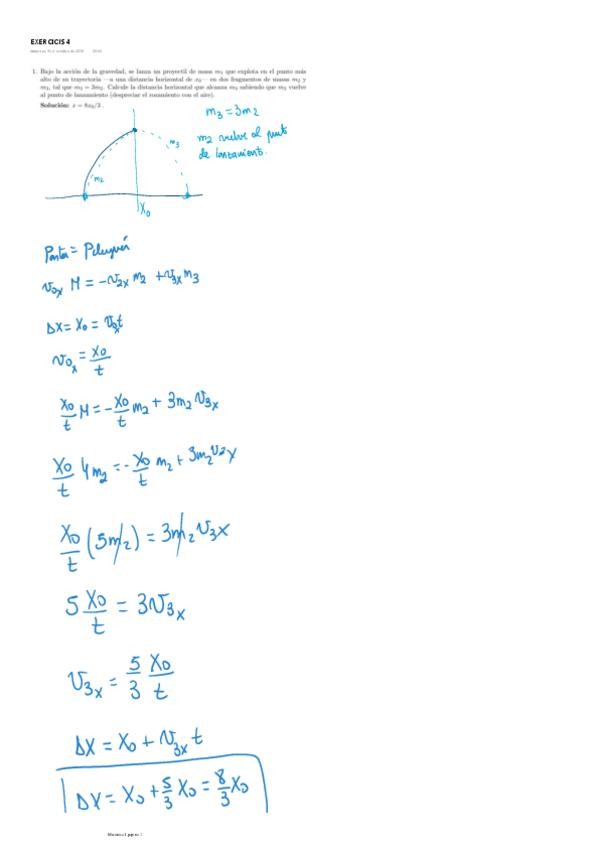 EXERCICIS 4
1. Bajo la acción de la gravedad, se lanza un proyectil de masa m₁ que explota en el punto más
alto de su trayectoria —a una distancia horizontal de x₀— en dos fragmentos de masas m₂ y
m₃, tal que m₃ = 3m₂. Calcule la distancia horizontal que alcanza m₃ sabiendo que m₂ vuelve
al punto de lanzamiento (despreciar el rozamiento con el aire).
Solución: x = 8x₀/3 .
m₃ = 3m₂
m₂ vuelve al punto
de lanzamiento.
m₃
m₂
X₀
v₀ₓ M = -v₂ₓ m₂ + v₃ₓ m₃
Δx = X₀ = v₀ₓt
v₀ₓ = X₀/t
X₀/t M = -X₀/t m₂ + 3m₂ v₃ₓ
X₀/t 4m₂ = -X₀/t m₂ + 3m₂ v₃ₓ
X₀/t (5m₂) = 3m₂ v₃ₓ
5 X₀/t = 3v₃ₓ
v₃ₓ = 5/3 X₀/t
ΔX = X₀ + v₃ₓ t
ΔX = X₀ + 5/3 X₀ = 8/3 X₀